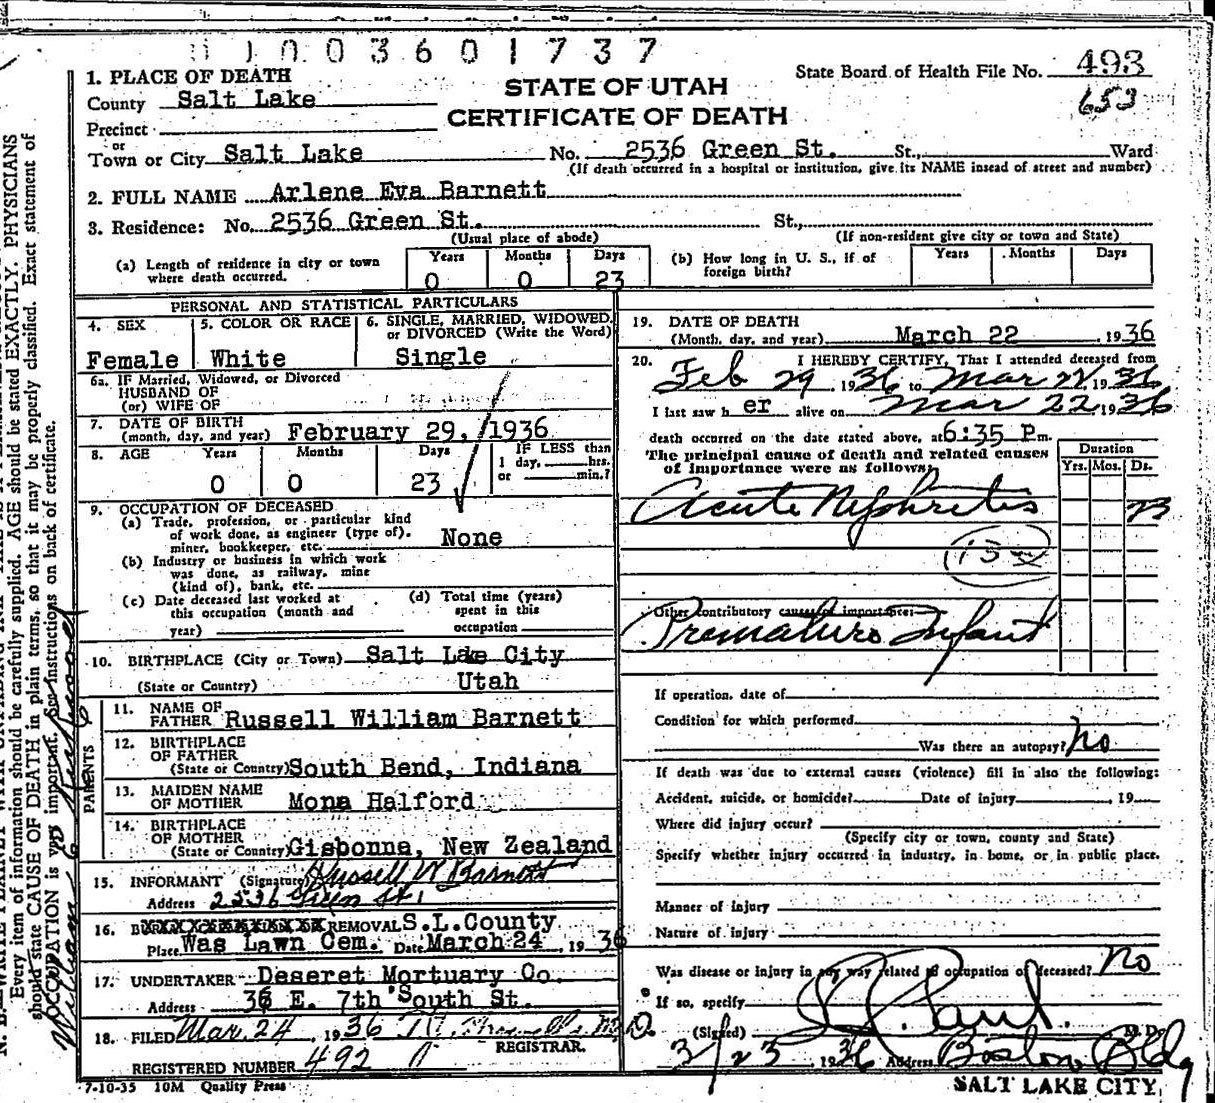 0100360 1737
1. PLACE OF DEATH
County Salt Lake
STATE OF UTAH
CERTIFICATE OF DEATH
State Board of Health File No. 493
653
Precinct
or
Town or City Salt Lake No. 2536 Green St. St., Ward
(If death occurred in a hospital or institution, give its NAME insead of street and number)
2. FULL NAME Arlene Eva Barnett
3. Residence: No. 2536 Green St. St.,
(Usual place of abode) (If non-resident give city or town and State)
(a) Length of residence in city or town where death occurred. Years 0 Months 0 Days 23
(b) How long in U. S., if of foreign birth? Years Months Days
PERSONAL AND STATISTICAL PARTICULARS
4. SEX Female
5. COLOR OR RACE White
6. SINGLE, MARRIED, WIDOWED, or DIVORCED (Write the Word) Single
6a. IF Married, Widowed, or Divorced
HUSBAND OF
(or) WIFE OF
7. DATE OF BIRTH
(month, day, and year) February 29, 1936
8. AGE Years 0 Months 0 Days 23 IF LESS than 1 day, hrs. or min.?
9. OCCUPATION OF DECEASED
(a) Trade, profession, or particular kind
of work done, as engineer (type of),
miner, bookkeeper, etc. None
(b) Industry or business in which work
was done, as railway, mine
(kind of), bank, etc.
(c) Date deceased last worked at
this occupation (month and
year)
(d) Total time (years)
spent in this
occupation
10. BIRTHPLACE (City or Town) Salt Lake City
(State or Country) Utah
PARENTS
11. NAME OF
FATHER Russell William Barnett
12. BIRTHPLACE
OF FATHER
(State or Country) South Bend, Indiana
13. MAIDEN NAME
OF MOTHER Mona Halford
14. BIRTHPLACE
OF MOTHER
(State or Country) Gisbonne, New Zealand
15. INFORMANT (Signature) Russell W Barnett
Address 2536 Green St.
16. REMOVAL S.L.County
Place Was Lawn Cem. Date March 24, 1936
17. UNDERTAKER Deseret Mortuary Co.
Address 36 E. 7th South St.
18. FILED Mar. 24, 1936 M.D.
REGISTRAR.
REGISTERED NUMBER 492
7-10-35 10M Quality Press
19. DATE OF DEATH
(Month, day, and year) March 22, 1936
20. I HEREBY CERTIFY, That I attended deceased from
Feb 29, 1936 to Mar 22, 1936
I last saw h er alive on Mar 22, 1936
death occurred on the date stated above, at 6:35 P m.
The principal cause of death and related causes
of importance were as follows:
Duration
Yrs. Mos. Ds.
Acute Nephritis 23
130
Other contributory causes of importance:
Premature Infant
If operation, date of
Condition for which performed
Was there an autopsy? No
If death was due to external causes (violence) fill in also the following:
Accident, suicide, or homicide? Date of injury , 19
Where did injury occur?
(Specify city or town, county and State)
Specify whether injury occurred in industry, in home, or in public place.
Manner of injury
Nature of injury
Was disease or injury in any way related to occupation of deceased? No
If so, specify
(Signed) M. D.
3/23 1936 Address Boston Bldg
SALT LAKE CITY
Every item of information should be carefully supplied. AGE should be stated EXACTLY. PHYSICIANS
should state CAUSE OF DEATH in plain terms, so that it may be properly classified. Exact statement of
OCCUPATION is very important. See instructions on back of certificate.